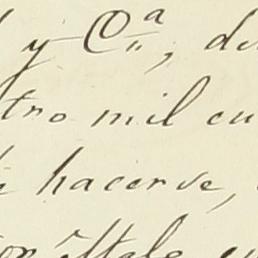 y Cª, de
tro mil cu
hacerse,